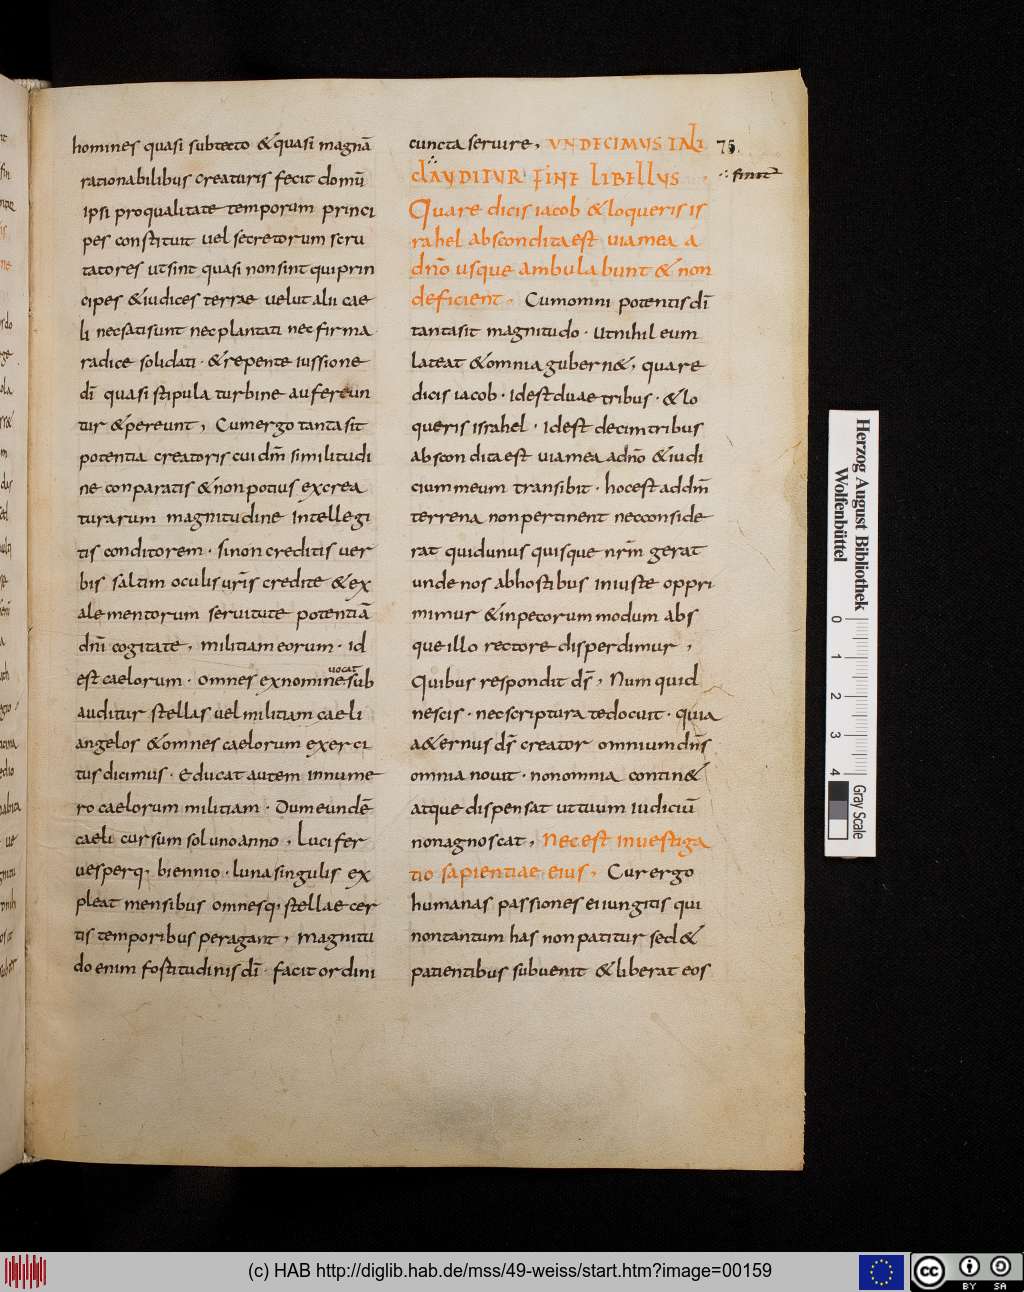 homines quasi subtecto &quasi magnā
rationabilibus creaturis fecit domū
ipsi proqualitate temporum princi
pes constituit uel secretorum scru
tatores utsint quasi nonsint quiprin
cipes &iudices terrae uelut alii cae
li necsatisunt necplantati necfirma
radice solidati · &repente iussione
dī quasi stipula turbine auferun
tur &pereunt, Cumergo tantasit
potentia creatoris cui dm̄ similitudi
ne conparatis &nonpotius excrea
turarum magnitudine intellegi
tis conditorem · sinon creditis uer
bis saltim oculis ur̄is credite &ex
alementorum seruitute potentiā
dn̄i cogitate, militiam eorum · id
est caelorum · omnes exnomine sub
uocat
auditur stellas uel militiam caeli
angelos &omnes caelorum exerci
tus dicimus · Educat autem innume
ro caelorum militiam · Dumeundē
caeli cursum sol unoanno, Lucifer
uesperq· biennio · luna singulis ex
pleat mensibus omnesq· stellae cer
tis temporibus peragant, magnitu
do enim fostitudinis dī · facit ordini
cuncta seruire, UNDECIMUS TALI
CLAUDITUR FINE LIBELLUS
Quare dicis iacob &loqueris is
rahel abscondita est uiamea a
dn̄o usque ambulabunt & non
deficient, Cumomni potentis dī
tantasit magnitudo · utnihil eum
lateat &omnia gubern&, quare
dicis iacob · idest duae tribus · &lo
queris israhel · idest decimtribus
abscondita est uiamea adn̄o &iudi
cium meum transibit · hocest addm̄
terrena nonpertinent necconside
rat quidunus quisque nr̄m gerat
unde nos abhostibus iniuste oppri
mimur &inpecorum modum abs
que illo rectore disperdimur,
Quibus respondit ds̄, Num quid
nescis · necscriptura tedocuit · quia
a&ernus ds̄ creator omnium dn̄s
omnia nouit · nonomnia contin&
atque dispensat uttuum iudiciū
nonagnoscat, Necest inuestiga
tio sapientiae eius, Cur ergo
humanas passiones ei iungitis qui
nontantum has non patitur sed&
patientibus subuenit &liberat eos
75.
Herzog August Bibliothek
Wolfenbüttel
0 1 2 3 4
Gray Scale
(c) HAB http://diglib.hab.de/mss/49-weiss/start.htm?image=00159
cc BY SA